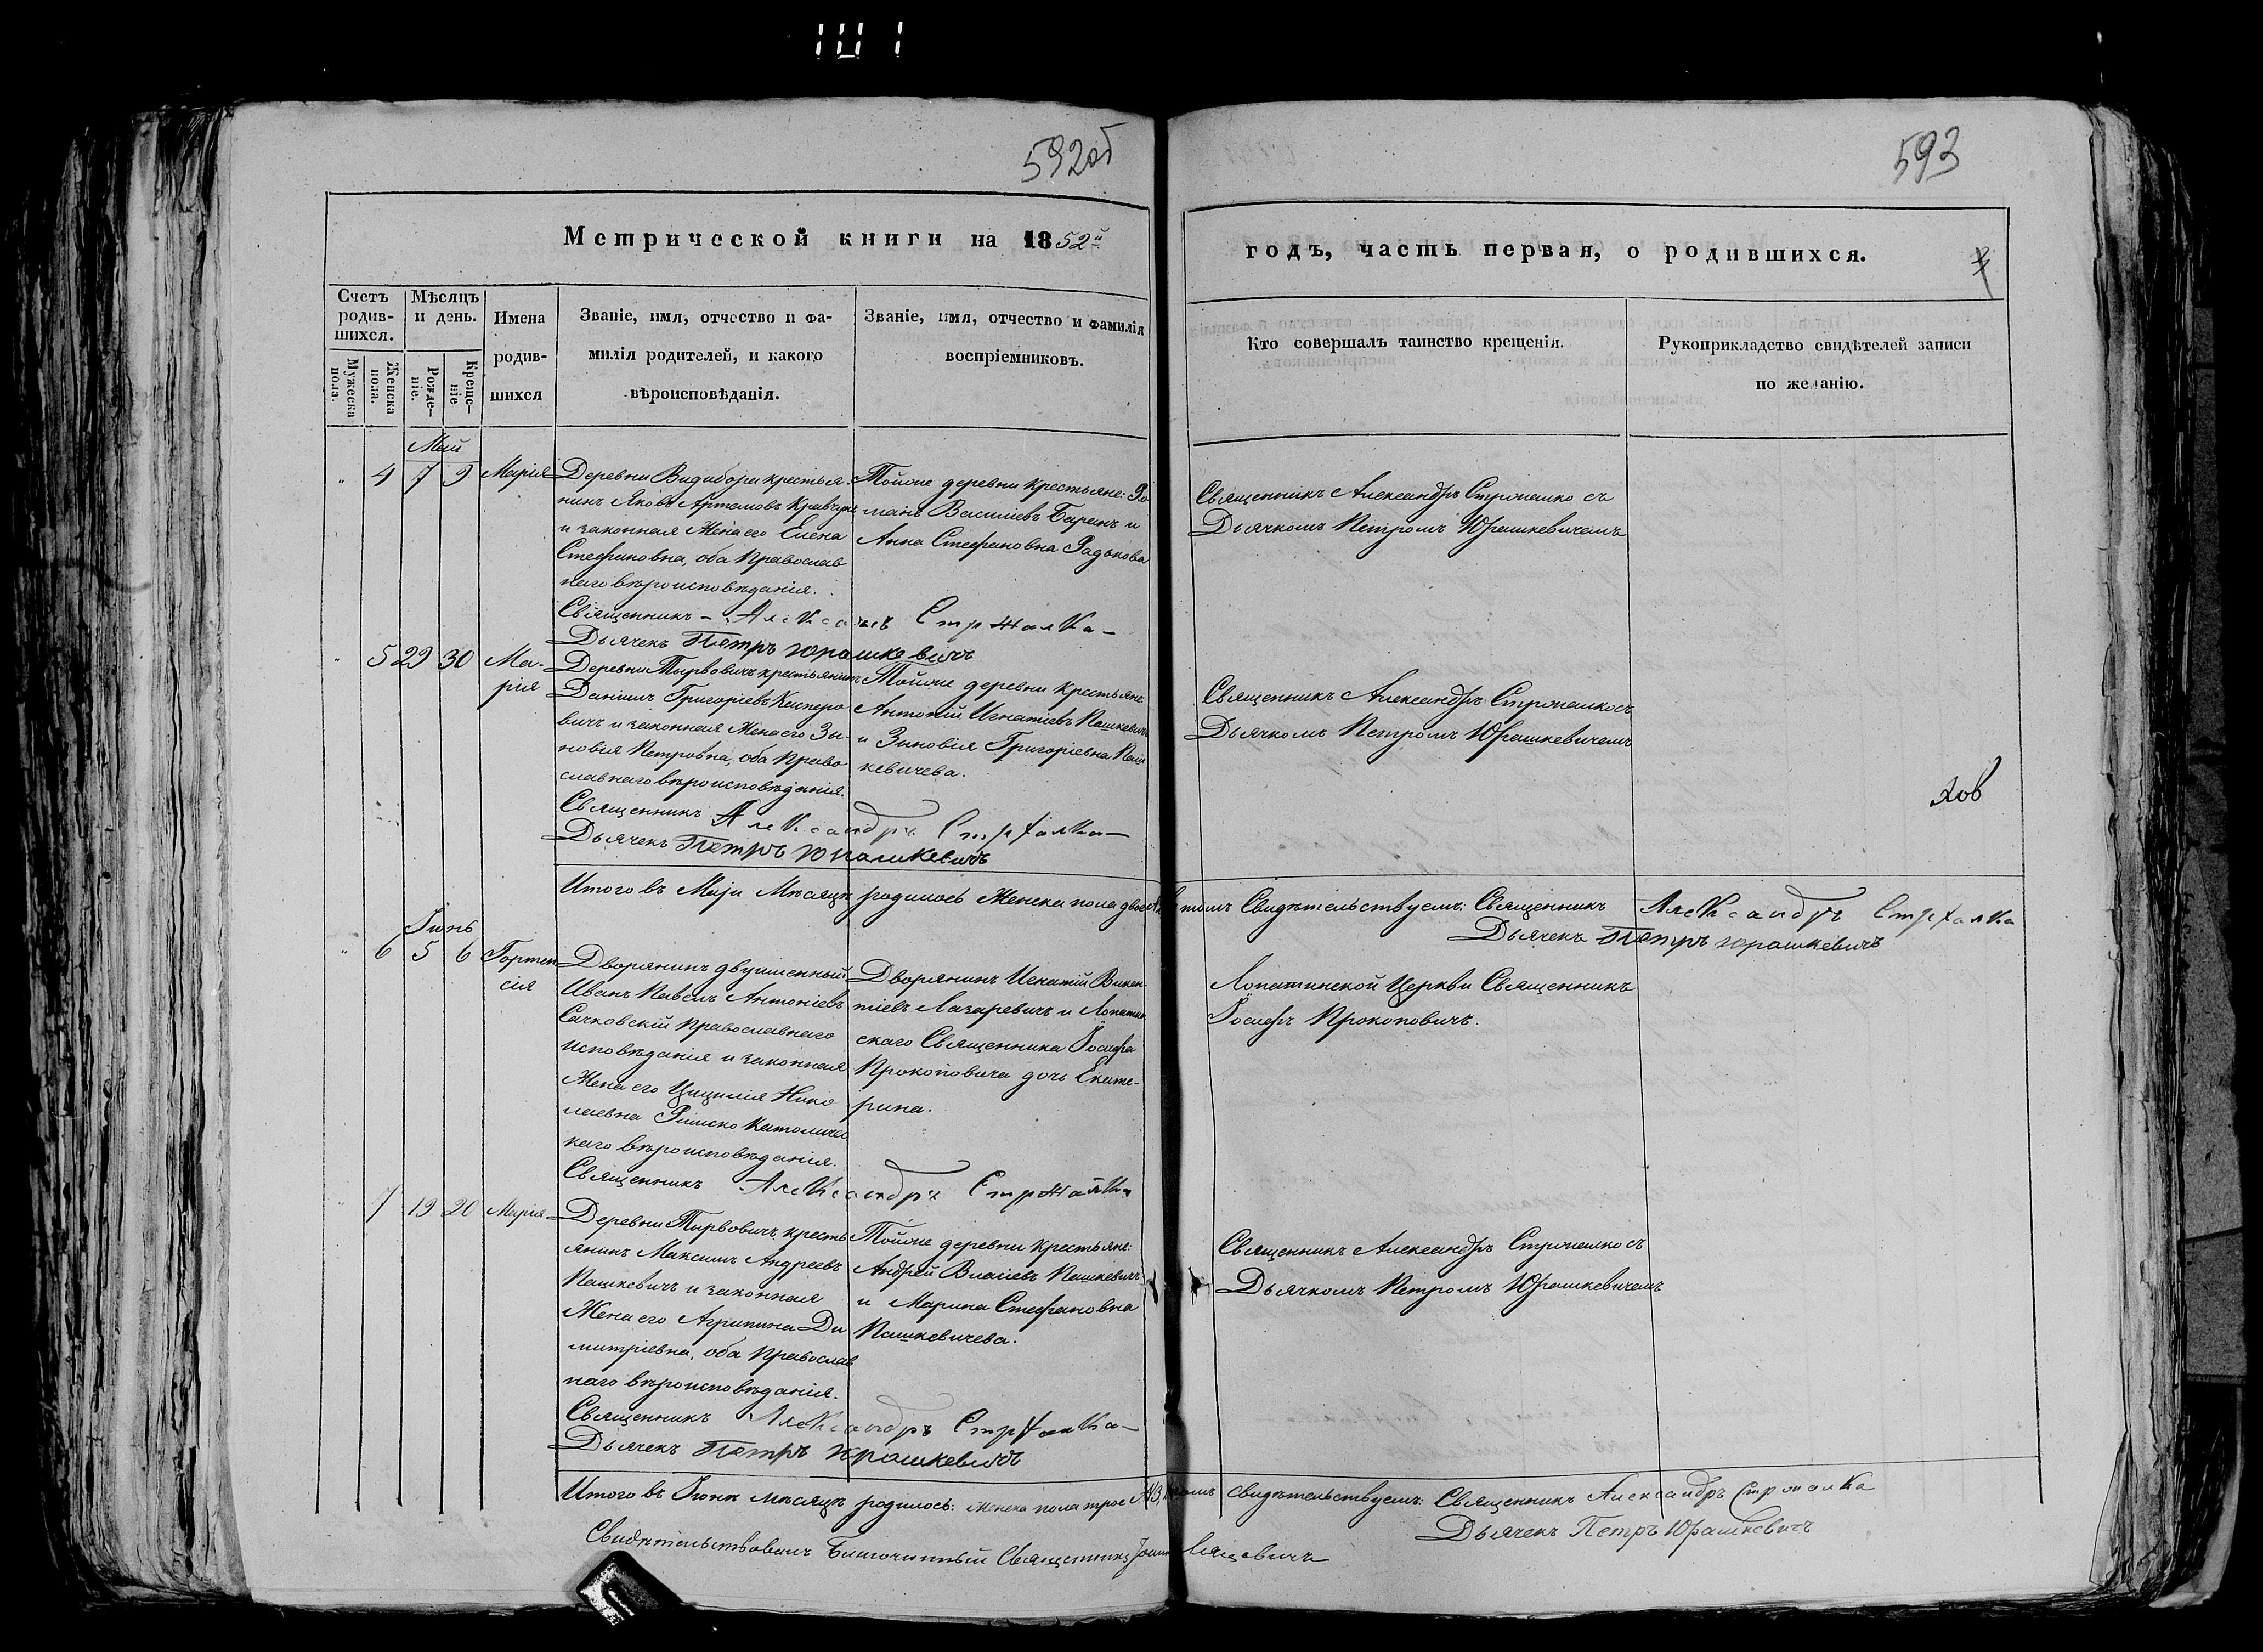 592об
593
Метрической книги на 1852й
годъ, часть первая, о родившихся.
Счетъ родив-шихся.
Мужеска пола.
Женска пола.
Мѣсяцъ и день.
Рожде-ніе.
Креще-ніе
Имена
родив-
шихся
Званіе, имя, отчество и фа-
милія родителей, и какого
вѣроисповѣданія.
Званіе, имя, отчество и фамилія
воспріемниковъ.
Кто совершалъ таинство крещенія.
Рукоприкладство свидѣтелей записи
по желанію.
Май
" 4 7 9 Марія
Деревни Видибори крестья-
нинъ Яковъ Артемовъ Кравчукъ
и законная Жена его Елена
Стефановна, оба Православ
наго вѣроисповѣданія.
Священникъ - Александръ Стржалка -
Дьячекъ Петръ Юрашкевичъ
Тойже деревни крестьяне: Ро
манъ Василіевъ Баренъ и
Анна Стефановна Радькова
Священникъ Александръ Стржалко съ
Дьячкомъ Петромъ Юрашкевичемъ
" 5 29 30 Ма-
рія
Деревни Тырвовичъ крестьянинъ
Даніилъ Григоріевъ Кесперо
вичъ и законная Жена его Зи-
новія Петровна, оба Право
славнаго вѣроисповѣданія.
Священникъ Александръ Стржалка -
Дьячекъ Петръ Юрашкевичъ
Тойже деревни крестьяне
Антоній Игнатіевъ Пашкевичъ
и Зиновія Григоріевна Паш
кевичева.
Священникъ Александръ Стржалко съ
Дьячкомъ Петромъ Юрашкевичемъ
Итого въ Маѣ Мѣсяцѣ родилось Женска пола двое
томъ Свидѣтельствуемъ: Священникъ Александръ Стржалка
Дьячекъ Петръ Юрашкевичъ
Іюнь
" 6 5 6 Гортен
сія
Дворянинъ двуименный
Иванъ Павелъ Антоніевъ
Сачковскій Православнаго
исповѣданія и законная
Жена его Цицилія Нико
лаевна Римско Католичес
каго вѣроисповѣданія.
Священникъ Александръ Стржалка
Дворянинъ Игнатій Викен
тіевъ Лазаревичъ и Лопатин
скаго Священника Іосифа
Прокоповича дочь Екате-
рина.
Лопатинской Церкви Священникъ
Іосифъ Прокоповичъ.
7 19 20 Марія
Деревни Тырвовичъ кресть
янинъ Максимъ Андреевъ
Пашкевичъ и законная
Жена его Агрипина Ди
митріевна, оба Православ
наго вѣроисповѣданія.
Священникъ Александръ Стржалка -
Дьячекъ Петръ Юрашкевичъ
Тойже деревни крестьяне:
Андрей Власіевъ Пашкевичъ
и Марина Стефановна
Пашкевичева.
Священникъ Александръ Стржалко съ
Дьячкомъ Петромъ Юрашкевичемъ
Итого въ Іюнѣ мѣсяцѣ родилось: женска пола трое
томъ свидѣтельствуемъ: Священникъ Александръ Стржалка
Дьячекъ Петръ Юрашкевичъ
Свидѣтельствовалъ Благочинный Священникъ